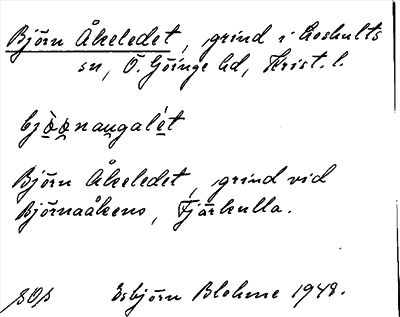 Björn Åkeledet, grind i Loshults
sn, Ö. Göinge hd, Krist. l.
Björn Åkeledet, grind vid
Björnaåkens, Tjärkulla.
Esbjörn Blohmé 1948.